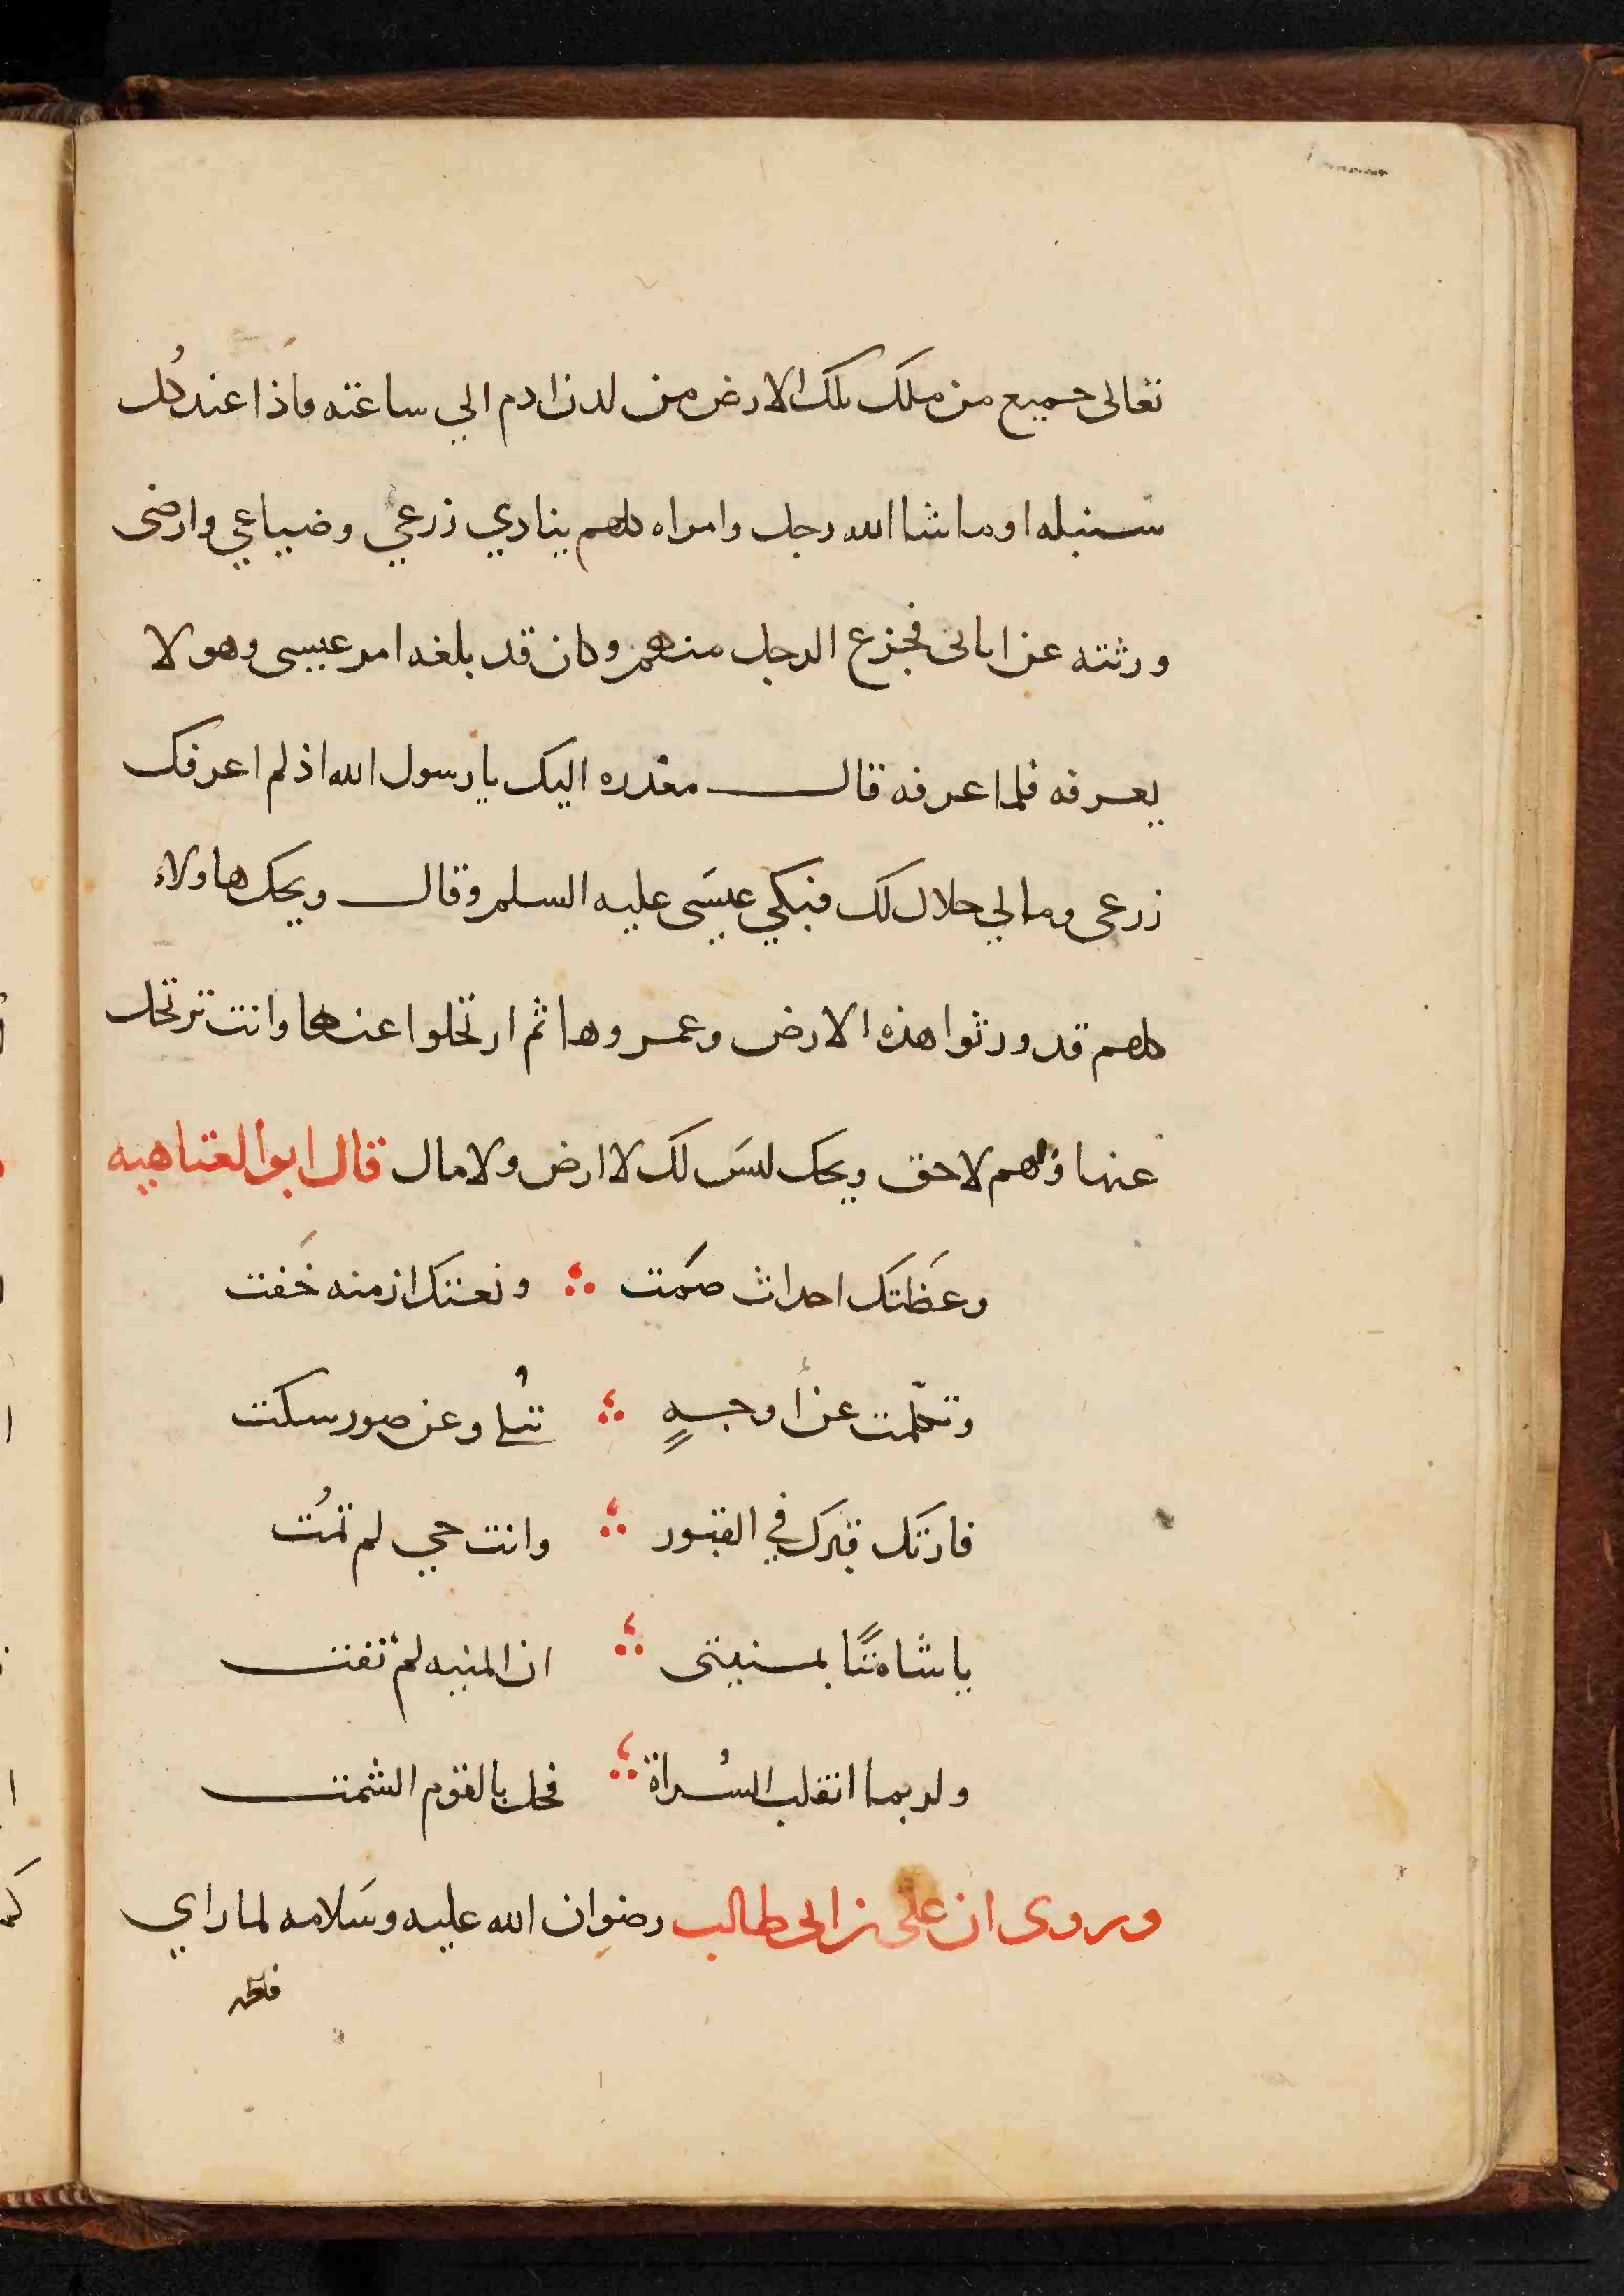 تعالى جميع من ملك تلك الارض من لدن ادم الي ساعته فاذا عند كل
سنبله او ما شا الله رجل وامراه كلهم ينادي زرعي وضياعي وارضى
ورثته عن ابائى فجزع الرجل منهم وكان قد بلغه امر عيسى وهو لا
يعرفه فلما عرفه قال معذره اليك يا رسول الله اذ لم اعرفك
زرعى ومالي حلال لك فبكي عيسى عليه السلم وقال ويحك هاولاء
كلهم قد ورثوا هذه الارض وعمروها ثم ارتحلوا عنها وانت ترتحل
عنها وبهم لاحق ويحك ليس لك لا ارض ولا مال قال ابو العتاهيه
وعظتك احداث صمت ؞ ونعتك ازمنه خفت
وتكلمت عن أوجهٍ ؞ تبلى وعن صور سكت
فارتك قبرك في القبور ؞ وانت حي لم تمت
يا شامتًا بمنيتى ؞ ان المنيه لم تفت
ولربما انقلب السراة ؞ فحل بالقوم الشمت
وروى ان على بن ابى طالب رضوان الله عليه وسلامه لما راي
فاطمه